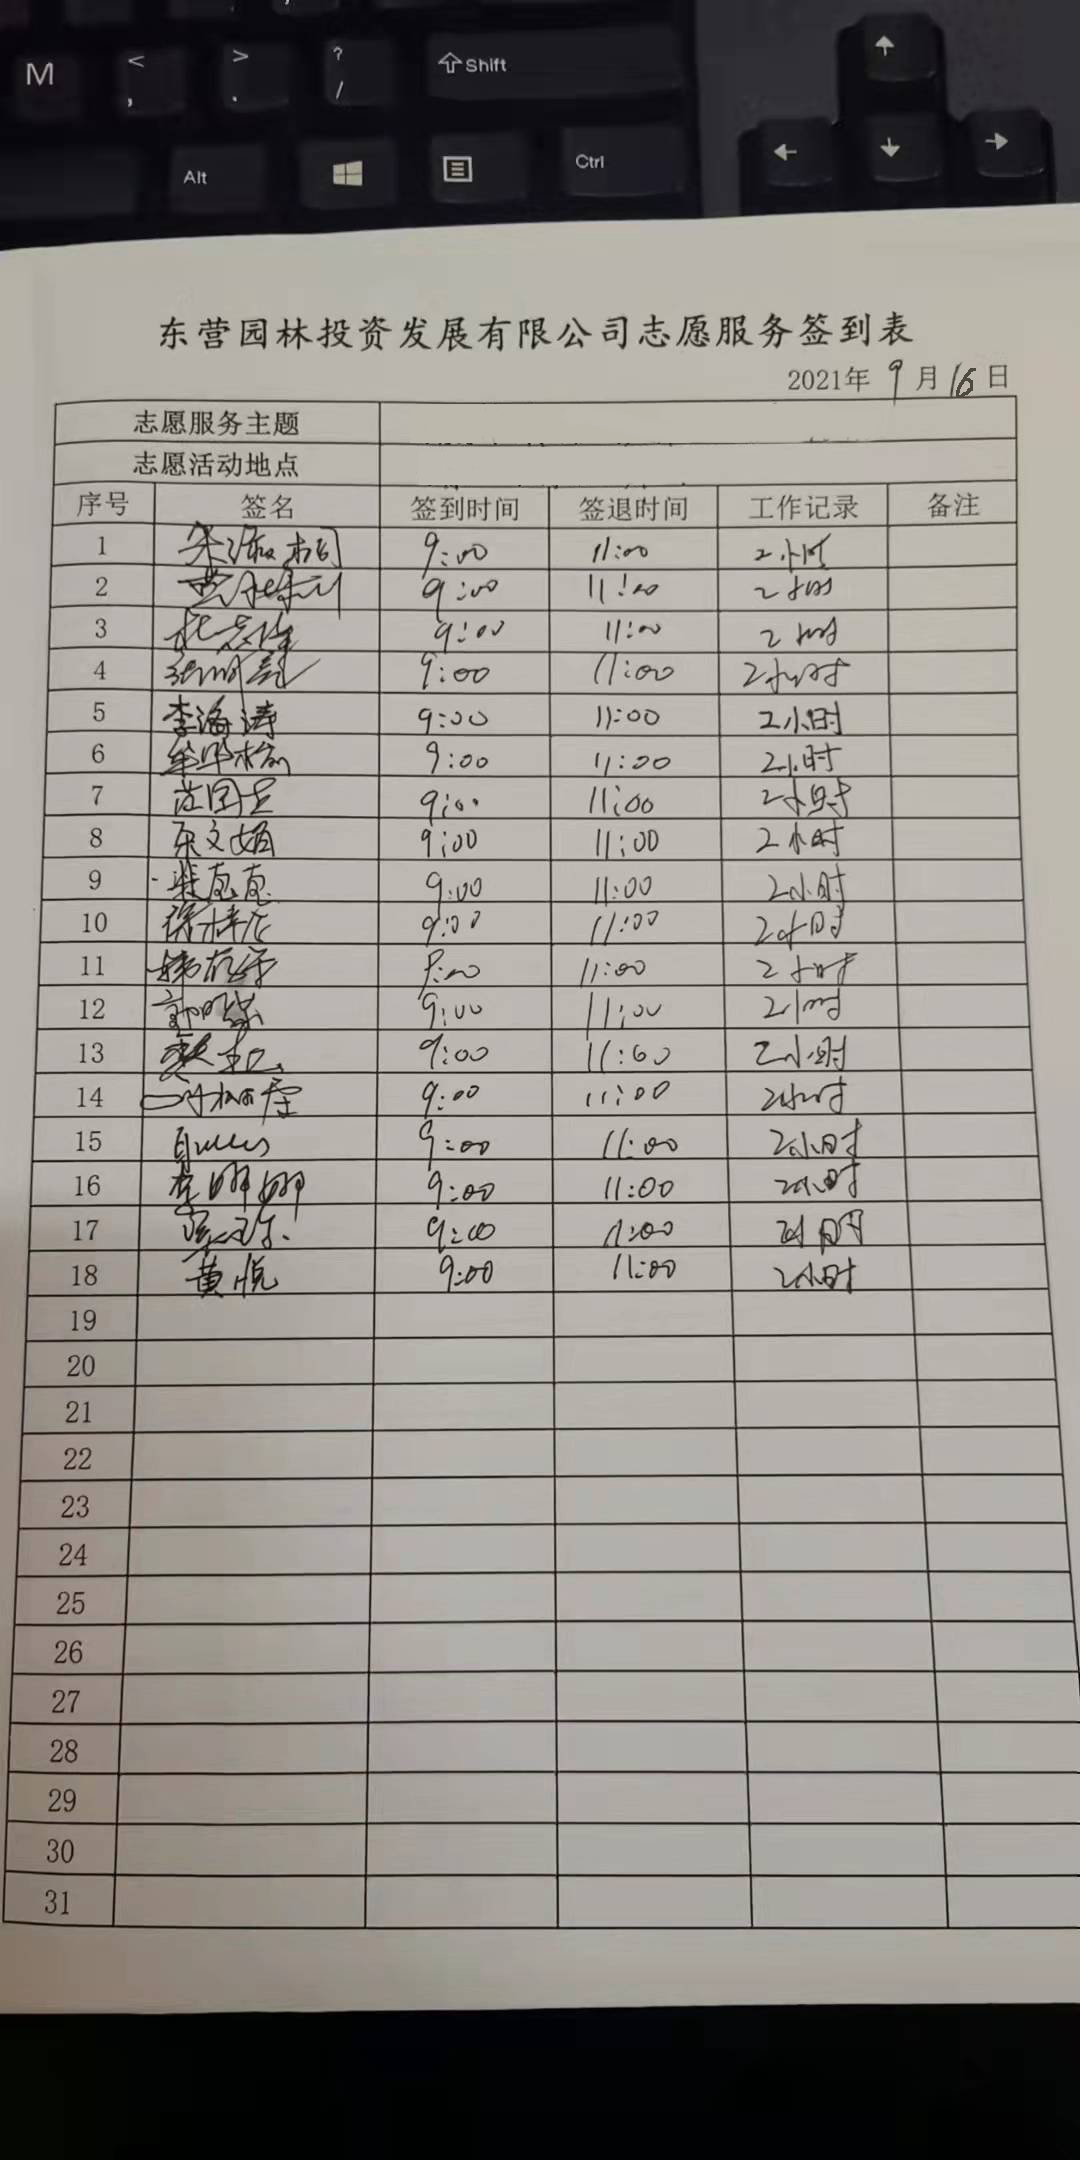 M < , > . ? / Shift
Alt Ctrl
东营园林投资发展有限公司志愿服务签到表
2021年 9 月 16 日
志愿服务主题
志愿活动地点
序号 签名 签到时间 签退时间 工作记录 备注
1 9:00 11:00 2小时
2 9:00 11:00 2小时
3 9:00 11:00 2小时
4 9:00 11:00 2小时
5 李海涛 9:00 11:00 2小时
6 9:00 11:00 2小时
7 9:00 11:00 2小时
8 9:00 11:00 2小时
9 9:00 11:00 2小时
10 9:00 11:00 2小时
11 11:00 2小时
12 9:00 11:00 2小时
13 9:00 11:00 2小时
14 9:00 11:00 2小时
15 9:00 11:00 2小时
16 李娜娜 9:00 11:00 2小时
17 9:00 11:00 2小时
18 黄悦 9:00 11:00 2小时
19
20
21
22
23
24
25
26
27
28
29
30
31